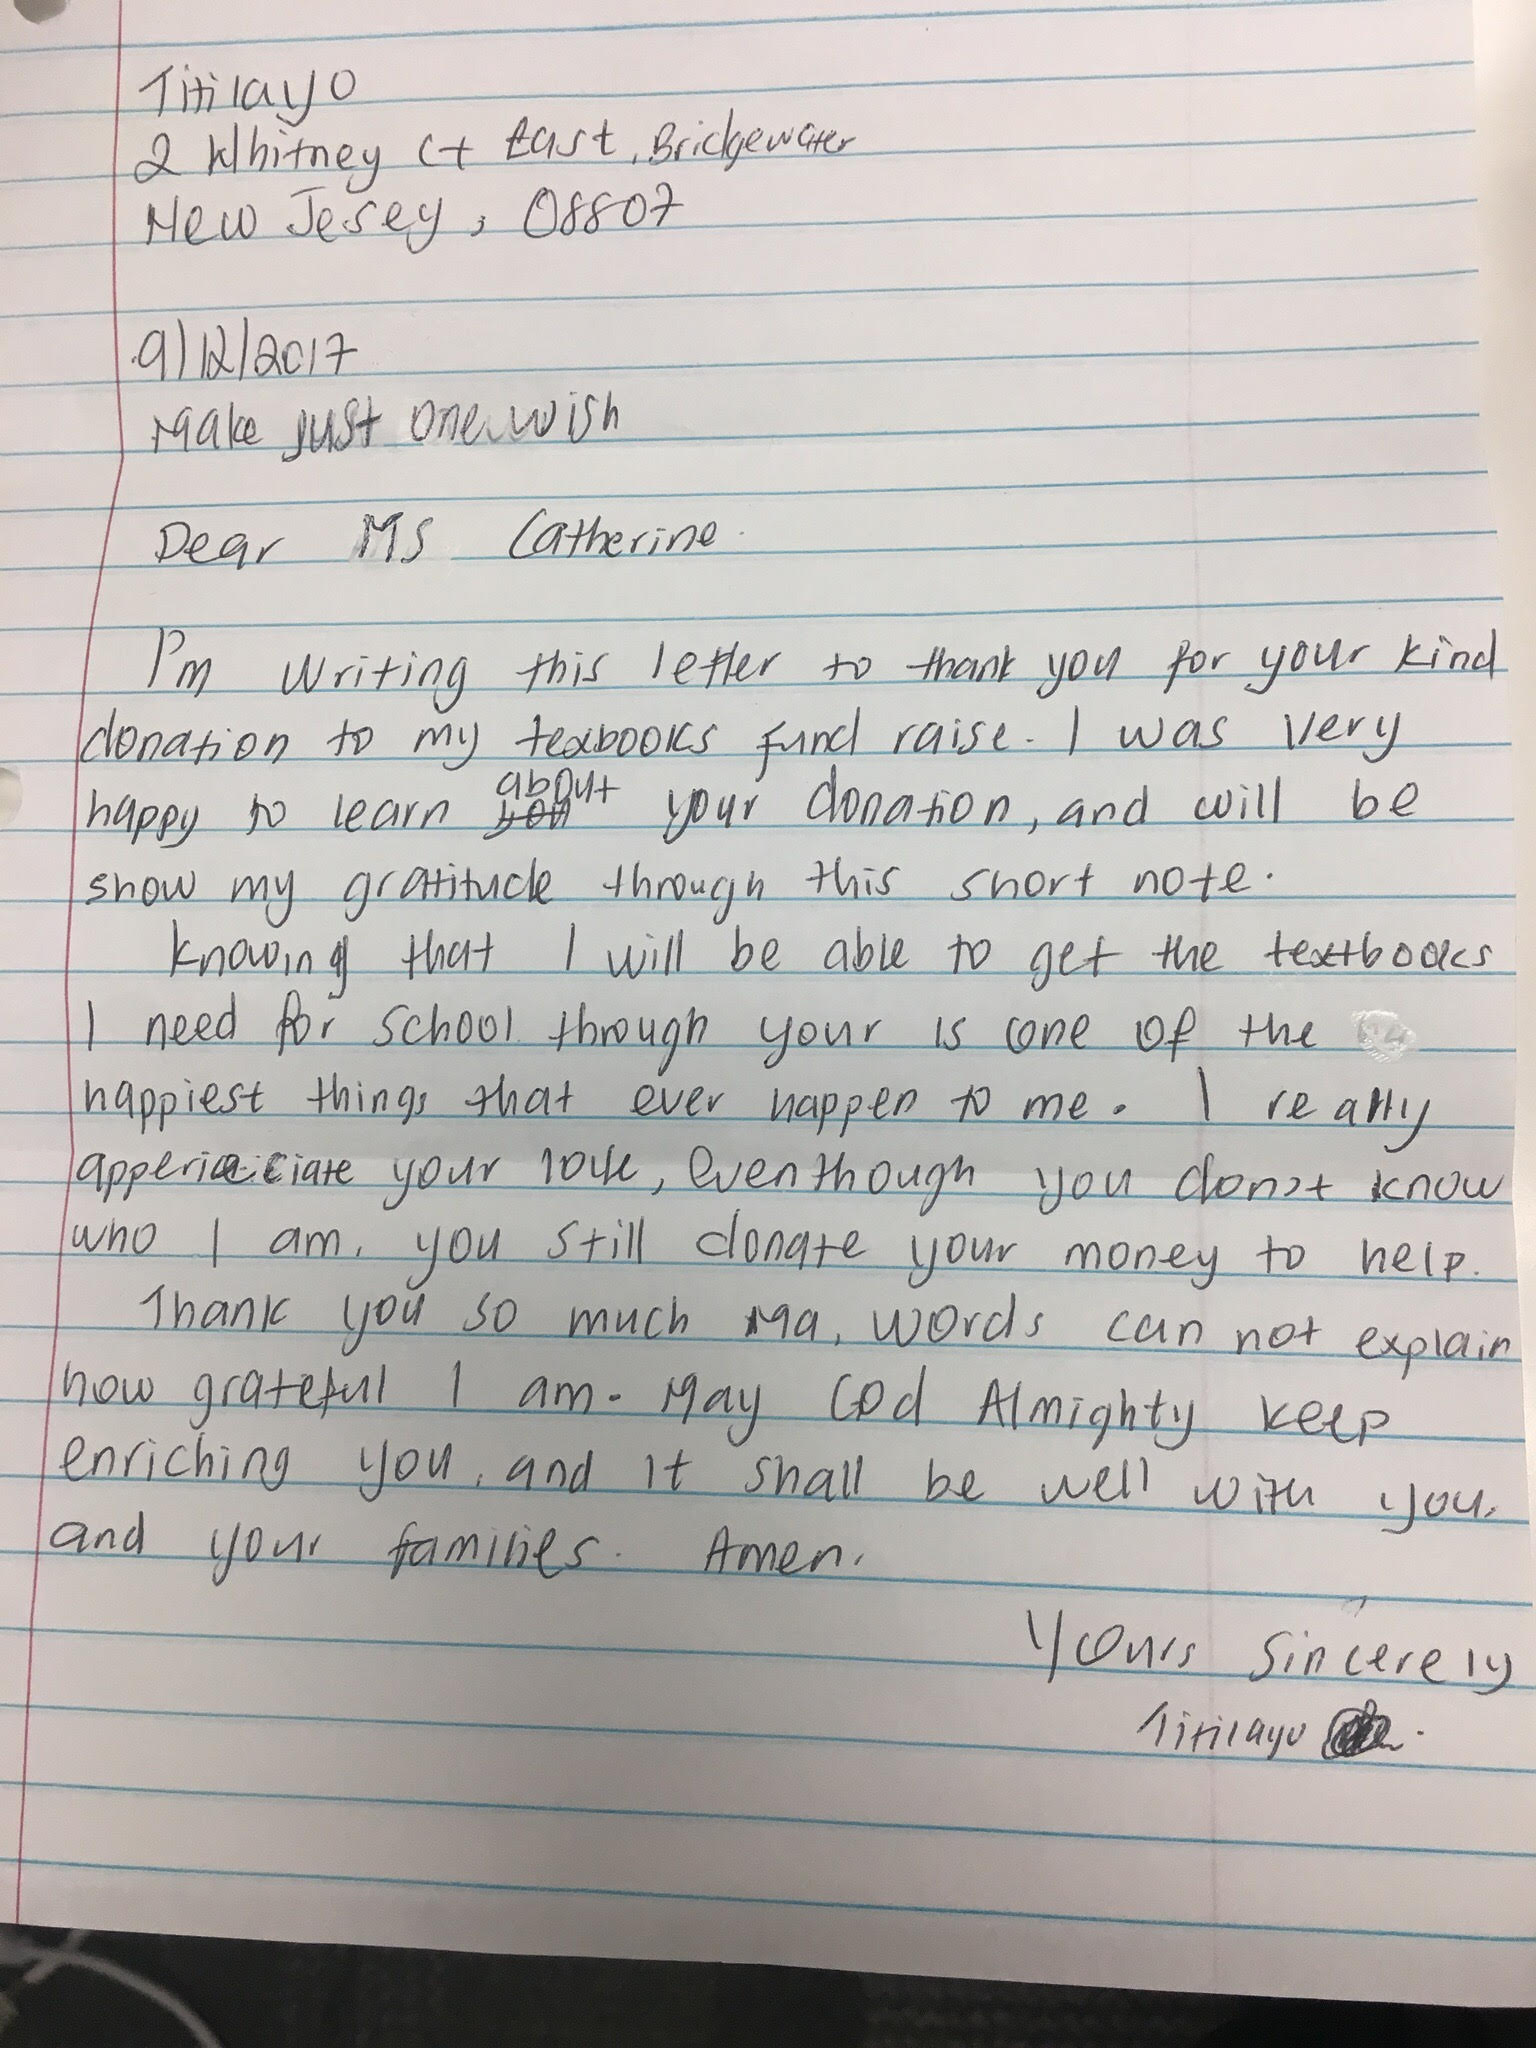 Titilayo
2 Whitney Ct East, Bridgewater
New Jesey, 08807
9/12/2017
Make just one wish
Dear Ms Catherine.
I'm writing this letter to thank you for your kind
donation to my texbooks fund raise. I was very
happy to learn about your donation, and will be
show my gratitude through this short note.
Knowing that I will be able to get the textbooks
I need for school through your is one of the
happiest things that ever happen to me. I really
your love, eventhough you don't know
who I am. you still donate your money to help.
Thank you so much Ma, words can not explain
how grateful I am. May God Almighty keep
enriching you, and it shall be well with you,
and your families. Amen.
Yours Sincerely
Titilayo